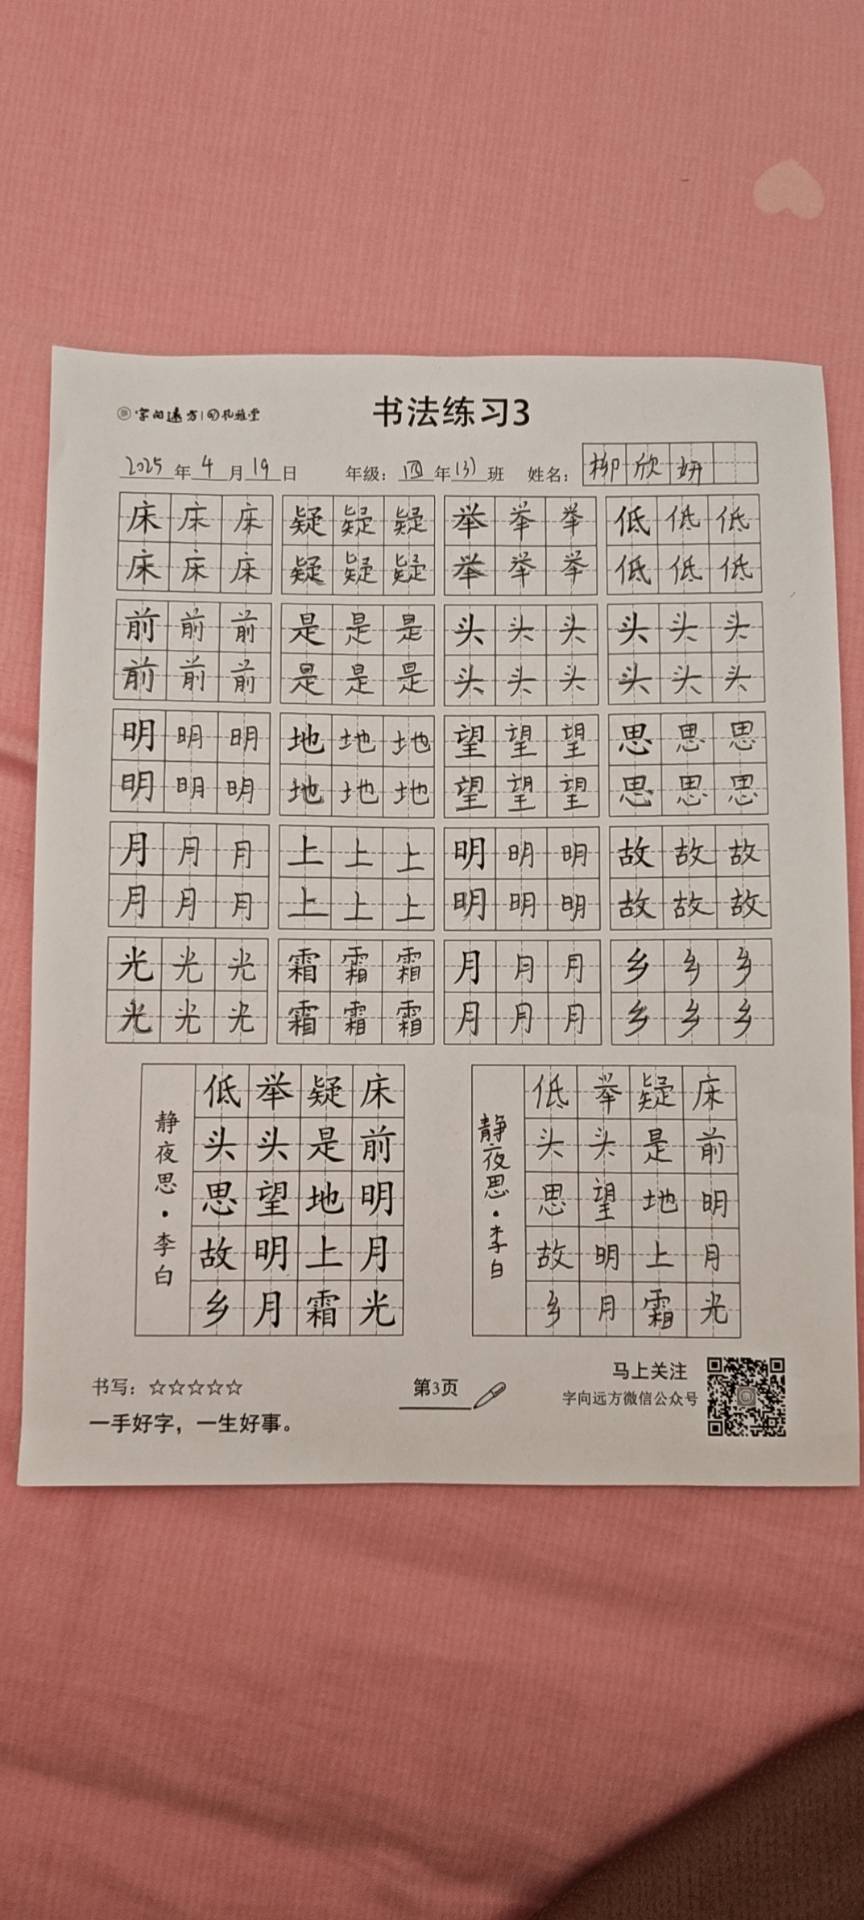 字向远方
书法练习3
2025年4月19日 年级：四年(3)班 姓名：柳欣妍
床床床 疑疑疑 举举举 低低低
床床床 疑疑疑 举举举 低低低
前前前 是是是 头头头 头头头
前前前 是是是 头头头 头头头
明明明 地地地 望望望 思思思
明明明 地地地 望望望 思思思
月月月 上上上 明明明 故故故
月月月 上上上 明明明 故故故
光光光 霜霜霜 月月月 乡乡乡
光光光 霜霜霜 月月月 乡乡乡
床前明月光
疑是地上霜
举头望明月
低头思故乡
静夜思·李白
床前明月光
疑是地上霜
举头望明月
低头思故乡
静夜思·李白
书写：☆☆☆☆☆
一手好字，一生好事。
第3页
马上关注
字向远方微信公众号